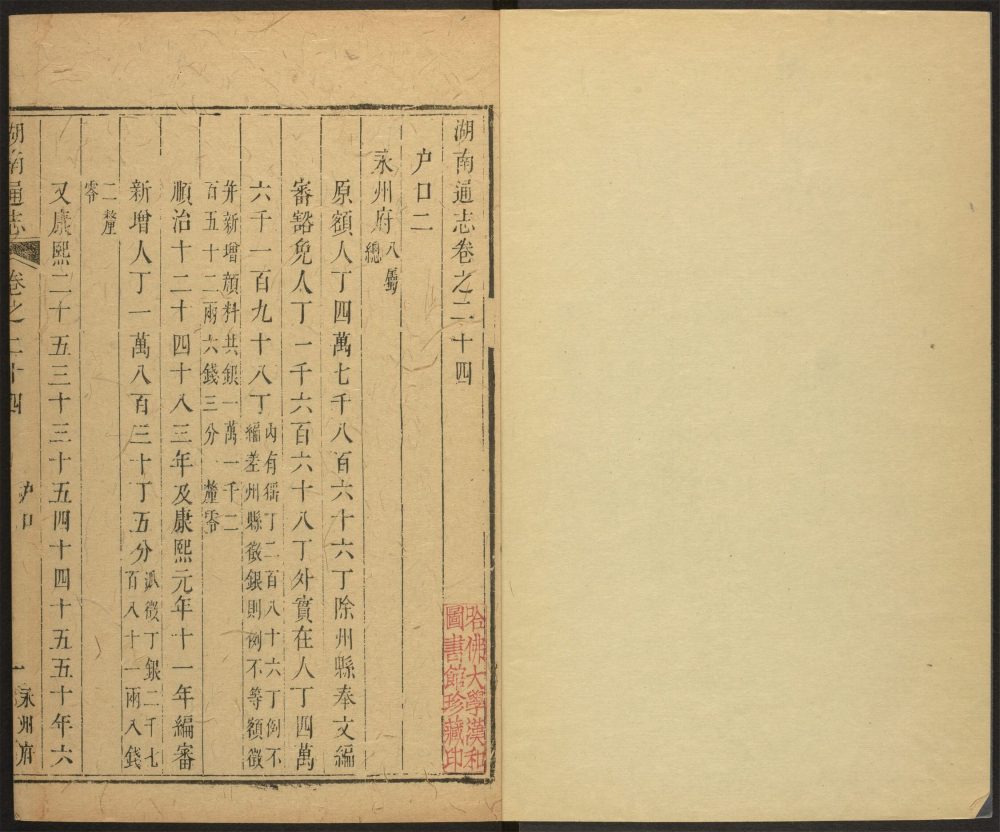 湖南通志卷之二十四
户口二
永州府八屬
總
原額人丁四萬七千八百六十六丁除州縣奉文編
審豁免人丁一千六百六十八丁外實在人丁四萬
六千一百九十八丁內有猺丁二百八十六丁例不
編差州縣徵銀則例不等額徵
并新增顏料共銀一萬一千二
百五十二兩六錢三分釐零
順治十二十四十八三年及康熙元年十一年編審
新增人丁一萬八百三十丁五分派徵丁銀二千七
百八十一兩八錢
二釐
零
又康熙二十五三十三十五四十四十五五十年六
湖南通志
卷之二十四
户口
一
永州府
哈佛大學漢和
圖書館珍藏印